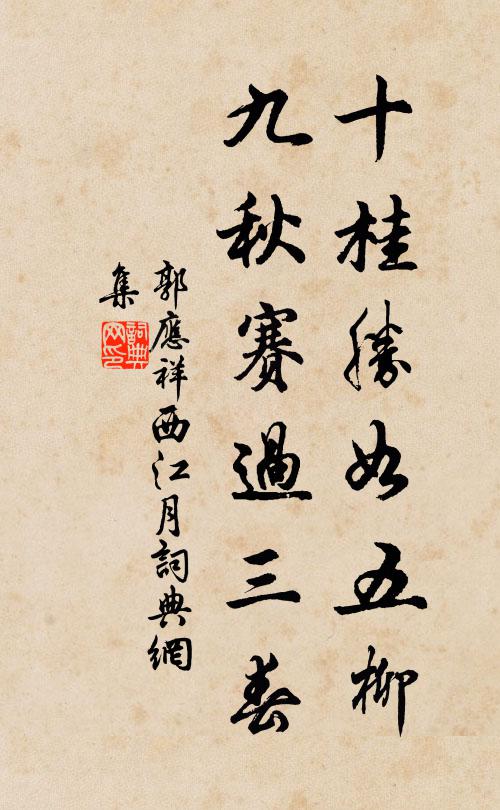 十桂勝如五柳
九秋賽過三春
郭應祥西江月詞典網
集
詞典網印